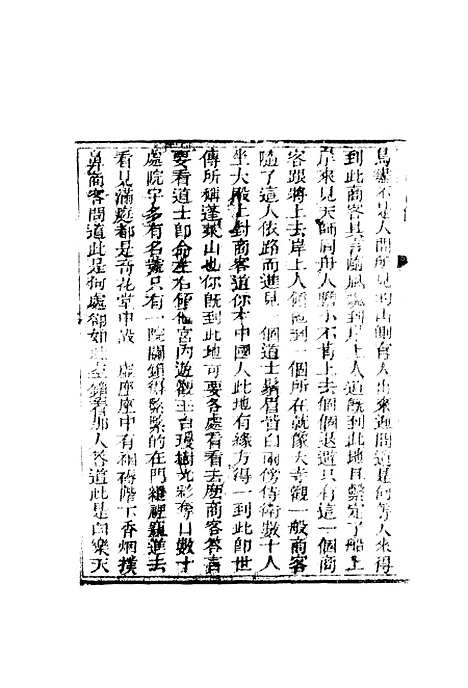 鳥獸不是人間所見的山側有人出來迎問道是何等人來得
到此商客具言隨風飄到岸上人道既到此地且繫定了船上
岸來見天師同舟人膽小不肯上去個個退避只有這一個商
客跟將上去岸上人領他到一個所在就像大寺觀一般商客
隨了這人依路而進見一個道士鬚眉皆白兩傍侍衛數十人
坐大殿上對商客道你本中國人此地有緣方得一到此即世
傳所稱蓬萊山也你既到此地可要各處看看去麼商客答言
要看道士即命左右領他宮內遊觀玉台瓊樹光彩奪目數十
處院宇多有名號只有一院關鎖得緊緊的在門縫裡窺進去
看見滿庭都是奇花堂中設虛座座中有裀褥階下香烟撲
鼻商客問道此是何處卻如此空鎖着那人答道此是白樂天